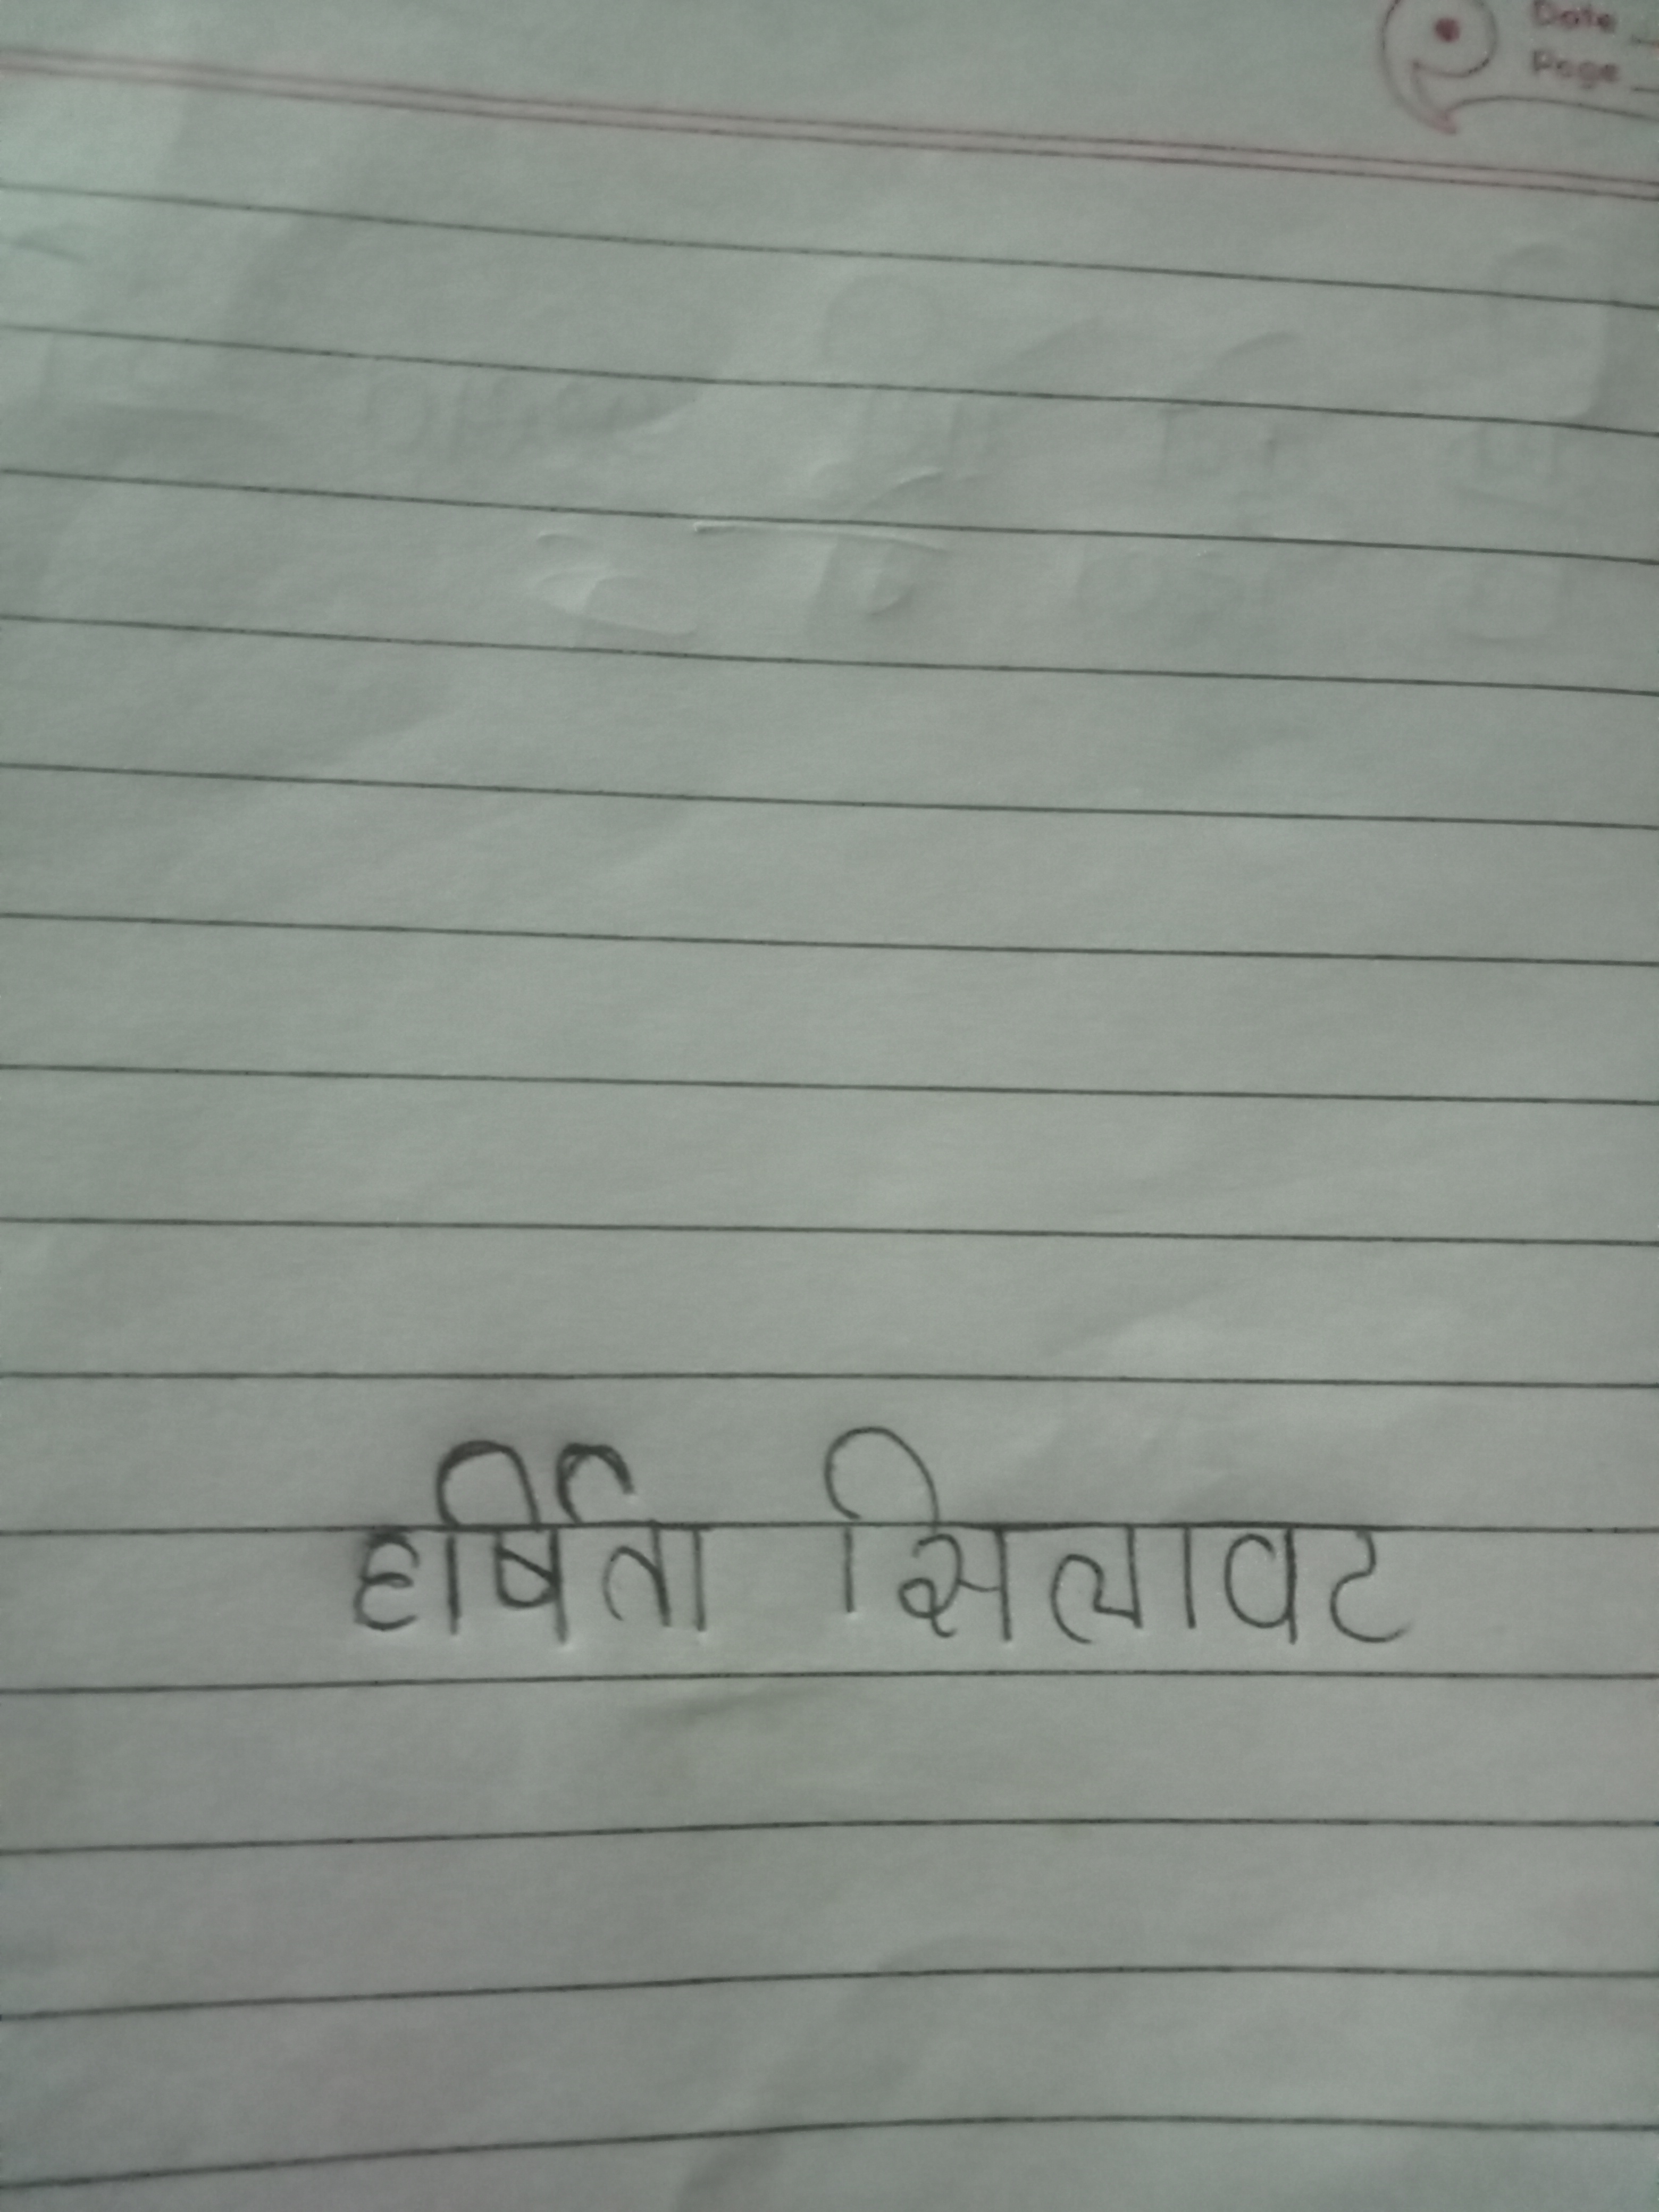 Date
Page
हर्षिता सिलावट